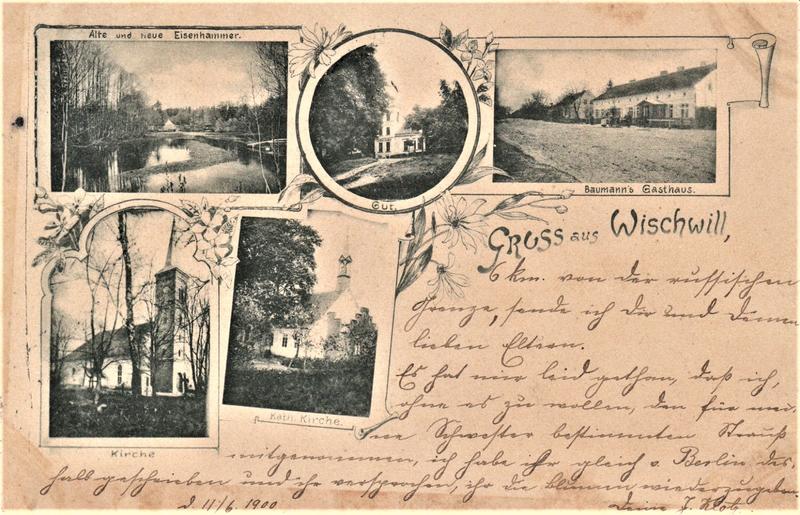 Alte und neue Eisenhammer.
Gut.
Baumann's Gasthaus.
Kirche
Kath. Kirche.
GRUSS aus Wischwill,
6 km. von der russischen
Grenze, sende ich Dir und Deinen
lieben Eltern.
Es hat mir leid gethan, daß ich,
ohne es zu wollen, den für mei-
ne Schwester bestimmten Strauß
mitgenommen, ich habe ihr gleich v. Berlin des-
halb geschrieben und ihr versprochen, ihr die Blumen wiederzugeben.
d. 11/6. 1900
Deine J.